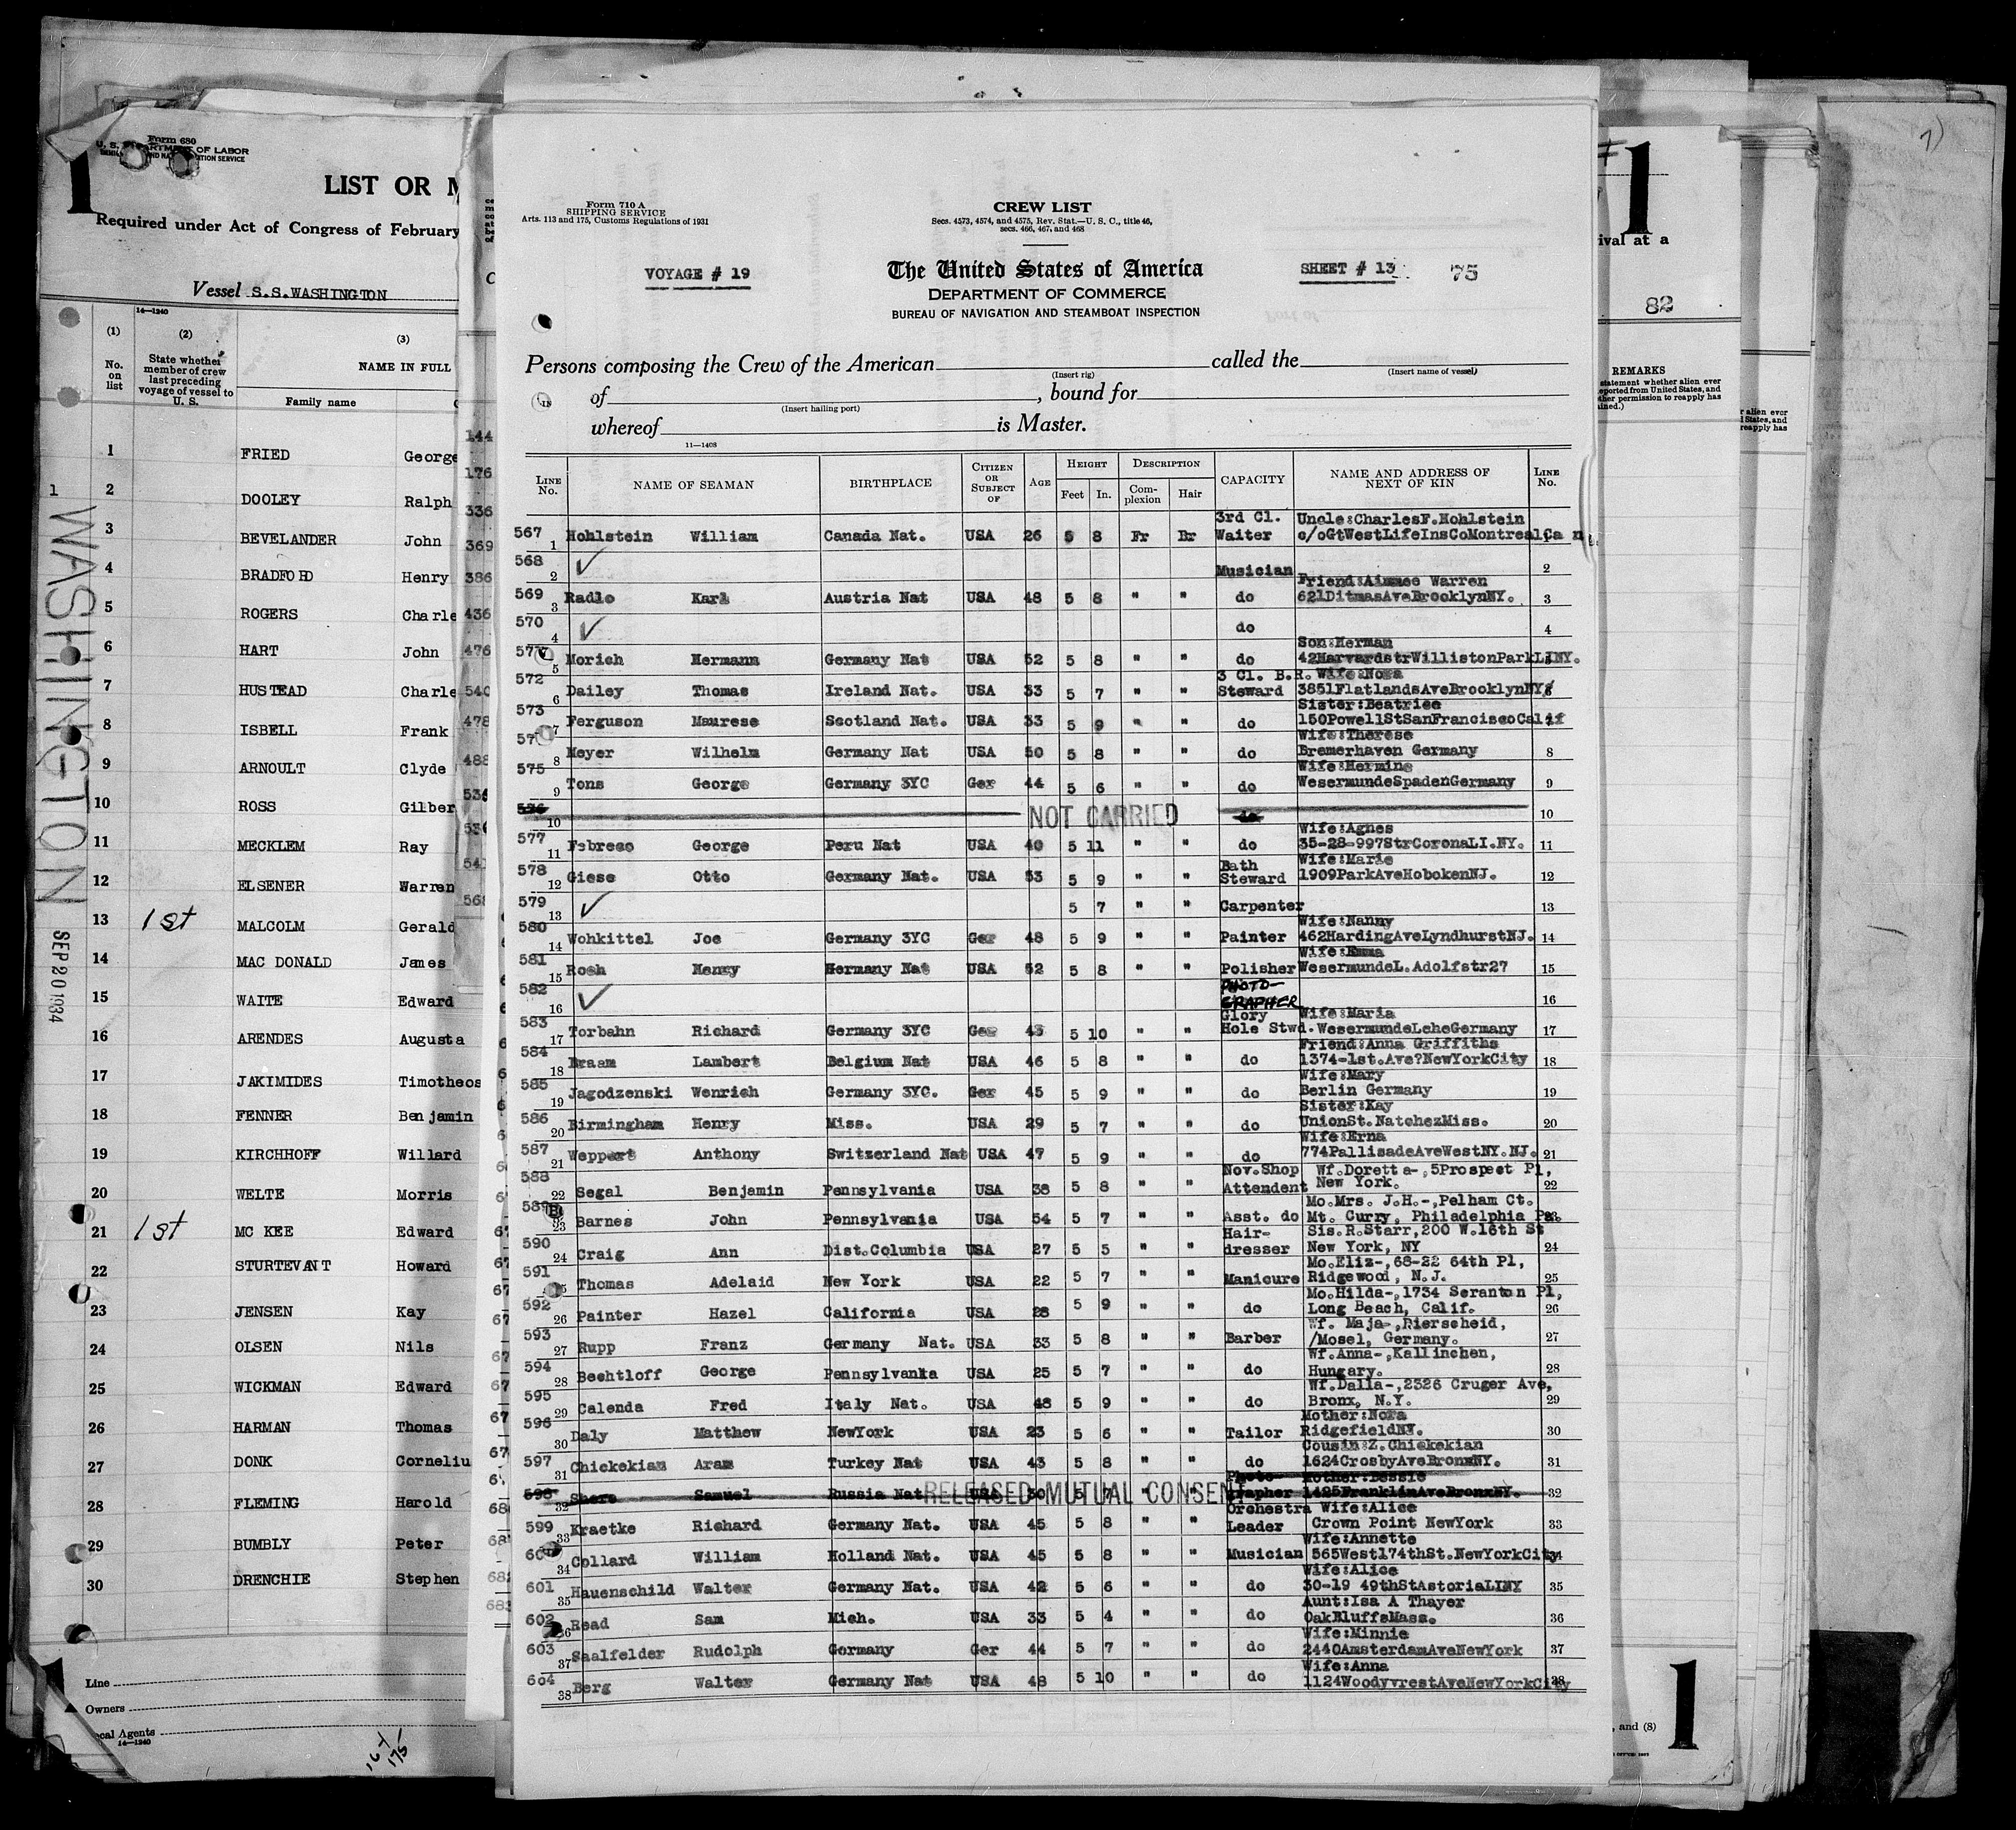 Form 680
U. S. DEPARTMENT OF LABOR
LIST OR
Required under Act of Congress of February
Vessel S.S.WASHINGTON
14—1240
(1) (2) (3)
No. on list
State whether member of crew last preceding voyage of vessel to U. S.
NAME IN FULL
Family name
1 FRIED George
2 DOOLEY Ralph
3 BEVELANDER John
4 BRADFORD Henry
5 ROGERS Charle
6 HART John
7 HUSTEAD Charle
8 ISBELL Frank
9 ARNOULT Clyde
10 ROSS Gilber
11 MECKLEM Ray
12 ELSENER Warren
13 1st MALCOLM Gerald
14 MAC DONALD James
15 WAITE Edward
16 ARENDES Augusta
17 JAKIMIDES Timotheos
18 FENNER Benjamin
19 KIRCHHOFF Willard
20 WELTE Morris
21 1st MC KEE Edward
22 STURTEVANT Howard
23 JENSEN Kay
24 OLSEN Nils
25 WICKMAN Edward
26 HARMAN Thomas
27 DONK Corneliu
28 FLEMING Harold
29 BUMBLY Peter
30 DRENCHIE Stephen
Line
Owners
Local Agents
14—1240
1 WASHINGTON
SEP 20 1934
Form 710 A
SHIPPING SERVICE
Arts. 113 and 175, Customs Regulations of 1931
CREW LIST
Secs. 4573, 4574, and 4575, Rev. Stat.—U. S. C., title 46,
secs. 466, 467, and 468
VOYAGE # 19
The United States of America
SHEET # 13 75
DEPARTMENT OF COMMERCE
BUREAU OF NAVIGATION AND STEAMBOAT INSPECTION
Persons composing the Crew of the American called the
(Insert rig) (Insert name of vessel)
of , bound for
(Insert hailing port)
whereof is Master.
11—1408
LINE No. NAME OF SEAMAN BIRTHPLACE CITIZEN OR SUBJECT OF AGE HEIGHT Feet In. DESCRIPTION Complexion Hair CAPACITY NAME AND ADDRESS OF NEXT OF KIN LINE No.
567 1 Hohlstein William Canada Nat. USA 26 5 8 Fr Br 3rd Cl. Waiter Uncle:CharlesF.Hohlstein c/oGtWestLifeInsCoMontrealCan.
568 2 ✓ Musician 2
569 3 Radlo Karl Austria Nat USA 48 5 8 " " do Friend:Aimmee Warren 621DitmasAveBrooklynNY. 3
570 4 ✓ do 4
571 5 Morich Hermann Germany Nat USA 52 5 8 " " do Son:Herman 42HarvardstrWillistonParkLINY.
572 6 Dailey Thomas Ireland Nat. USA 33 5 7 " " 3 Cl. B.R. Steward Wife:Nora 3851FlatlandsAveBrooklynNY
573 7 Ferguson Maurese Scotland Nat. USA 33 5 9 " " do Sister:Beatrice 150PowellStSanFranciscoCalif
8 Meyer Wilhelm Germany Nat USA 50 5 8 " " do Wife:Therese Bremerhaven Germany 8
575 9 Tons George Germany 3YC Ger 44 5 6 " " do Wife:Hermine WesermundeSpadenGermany 9
10 NOT CARRIED do 10
577 11 Febreso George Peru Nat USA 40 5 11 " " do Wife:Agnes 35-28-997StrCoronaLI.NY. 11
578 12 Giese Otto Germany Nat. USA 53 5 9 " " Bath Steward Wife:Marie 1909ParkAveHobokenNJ. 12
579 13 ✓ 5 7 " " Carpenter 13
580 14 Wohkittel Joe Germany 3YC Ger 48 5 9 " " Painter Wife:Nanny 462HardingAveLyndhurstNJ. 14
581 15 Rosh Henry Hermany Nat USA 52 5 8 " " Polisher Wife:Emma WesermundeL.Adolfstr27 15
582 16 ✓ PHOTO-GRAPHER 16
583 17 Torbahn Richard Germany 3YC Ger 45 5 10 " " Glory Hole Stwd. Wife:Maria WesermundeLeheGermany 17
584 18 Braam Lambert Belgium Nat USA 46 5 8 " " do Friend:Anna Griffiths 1374-1st.Ave?NewYorkCity 18
585 19 Jagodzenski Wenrich Germany 3YC. Ger 45 5 9 " " do Wife:Mary Berlin Germany 19
586 20 Birmingham Henry Miss. USA 29 5 7 " " do Sister:Kay UnionSt.NatchezMiss. 20
587 21 Weppert Anthony Switzerland Nat USA 47 5 9 " " do Wife:Erna 774PallisadeAveWestNY.NJ. 21
588 22 Segal Benjamin Pennsylvania USA 38 5 8 " " Nov.Shop Attendent Wf.Doretta-,5Prospect Pl, New York. 22
589 23 Barnes John Pennsylvania USA 54 5 7 " " Asst. do Mo.Mrs. J.H.-,Pelham Ct. Mt. Curry, Philadelphia Pa.
590 24 Craig Ann Dist.Columbia USA 27 5 5 " " Hair-dresser Sis.R.Starr,200 W.16th St New York, NY 24
591 25 Thomas Adelaid New York USA 22 5 7 " " Manicure Mo.Eliz-,68-22 64th Pl, Ridgewood, N.J. 25
592 26 Painter Hazel California USA 28 5 9 " " do Mo.Hilda-,1734 Scranton Pl, Long Beach, Calif. 26
593 27 Rupp Franz Germany Nat. USA 33 5 8 " " Barber Wf. Maja-,Rierscheid, /Mosel, Germany. 27
594 28 Bechtloff George Pennsylvania USA 25 5 7 " " do Wf.Anna-,Kallinchen, Hungary. 28
595 29 Calenda Fred Italy Nat. USA 48 5 9 " " do Wf.Dalla-,2326 Cruger Ave, Bronx, N.Y. 29
596 30 Daly Matthew NewYork USA 23 5 6 " " Tailor Mother:Nora RidgefieldNY. 30
597 31 Chickekiam Aram Turkey Nat USA 43 5 8 " " do Cousin:Z.Chickekian 1624CrosbyAveBronxNY. 31
598 32 Shere Samuel Russia Nat USA 30 5 7 RELEASED MUTUAL CONSENT Photo-grapher Mother:Bessie 1425FranklinAveBronxNY. 32
599 33 Kraetke Richard Germany Nat. USA 45 5 8 " " Orchestra Leader Wife:Alice Crown Point NewYork 33
34 Collard William Holland Nat. USA 45 5 8 " " Musician Wife:Annette 565West174thSt.NewYorkCity
601 35 Hauenschild Walter Germany Nat. USA 42 5 6 " " do Wife:Alice 30-19 49thStAstoriaLINY 35
602 36 Read Sam Mich. USA 33 5 4 " " do Aunt:Isa A Thayer OakBluffsMass. 36
603 37 Saalfelder Rudolph Germany Ger 44 5 7 " " do Wife:Minnie 2440AmsterdamAveNewYork 37
604 38 Berg Walter Germany Nat USA 48 5 10 " " do Wife:Anna 1124WoodyvrestAveNewYorkCity
1
ival at a
82
REMARKS
, and (8)
1